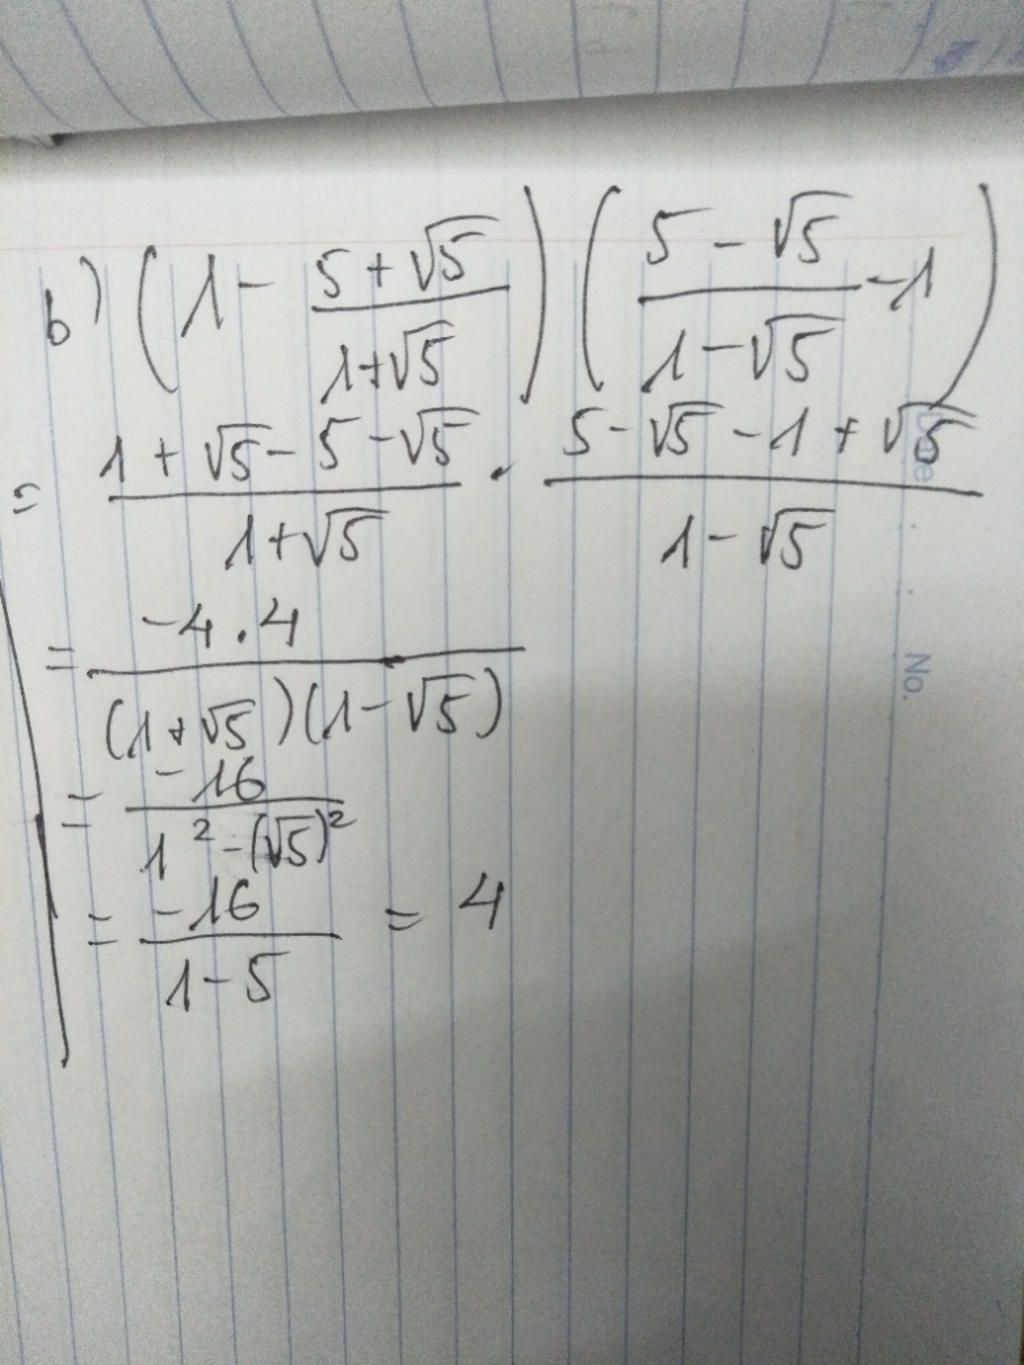 b) (1 - (5 + √5)/(1 + √5)) ((5 - √5)/(1 - √5) - 1)
= (1 + √5 - 5 - √5)/(1 + √5) . (5 - √5 - 1 + √5)/(1 - √5)
= (-4 . 4)/((1 + √5)(1 - √5))
= (-16)/(1² - (√5)²)
= (-16)/(1 - 5) = 4
Date
No.